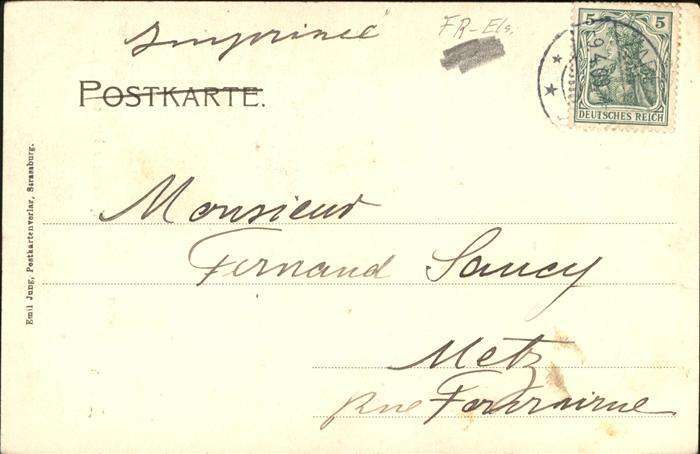 Imprimé
FR-Els.
POSTKARTE.
5 5
9.4.09
DEUTSCHES REICH
Emil Jung, Postkartenverlag, Strassburg.
Monsieur
Fernand Saucy
Metz
Rue